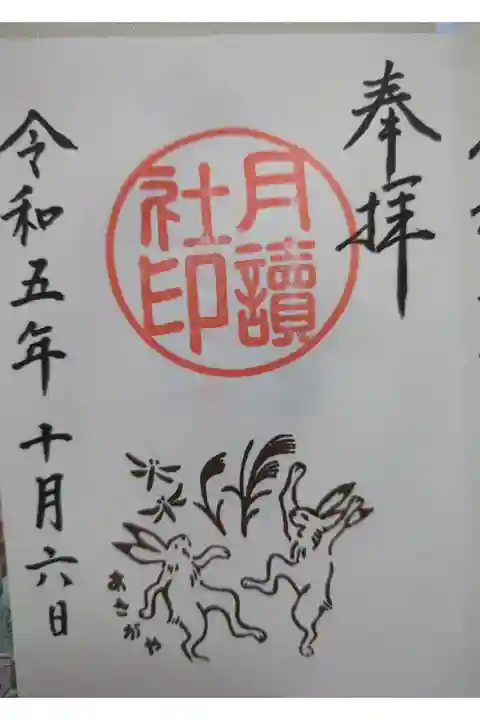 奉拝
月讀
社印
あさがや
令和五年十月六日